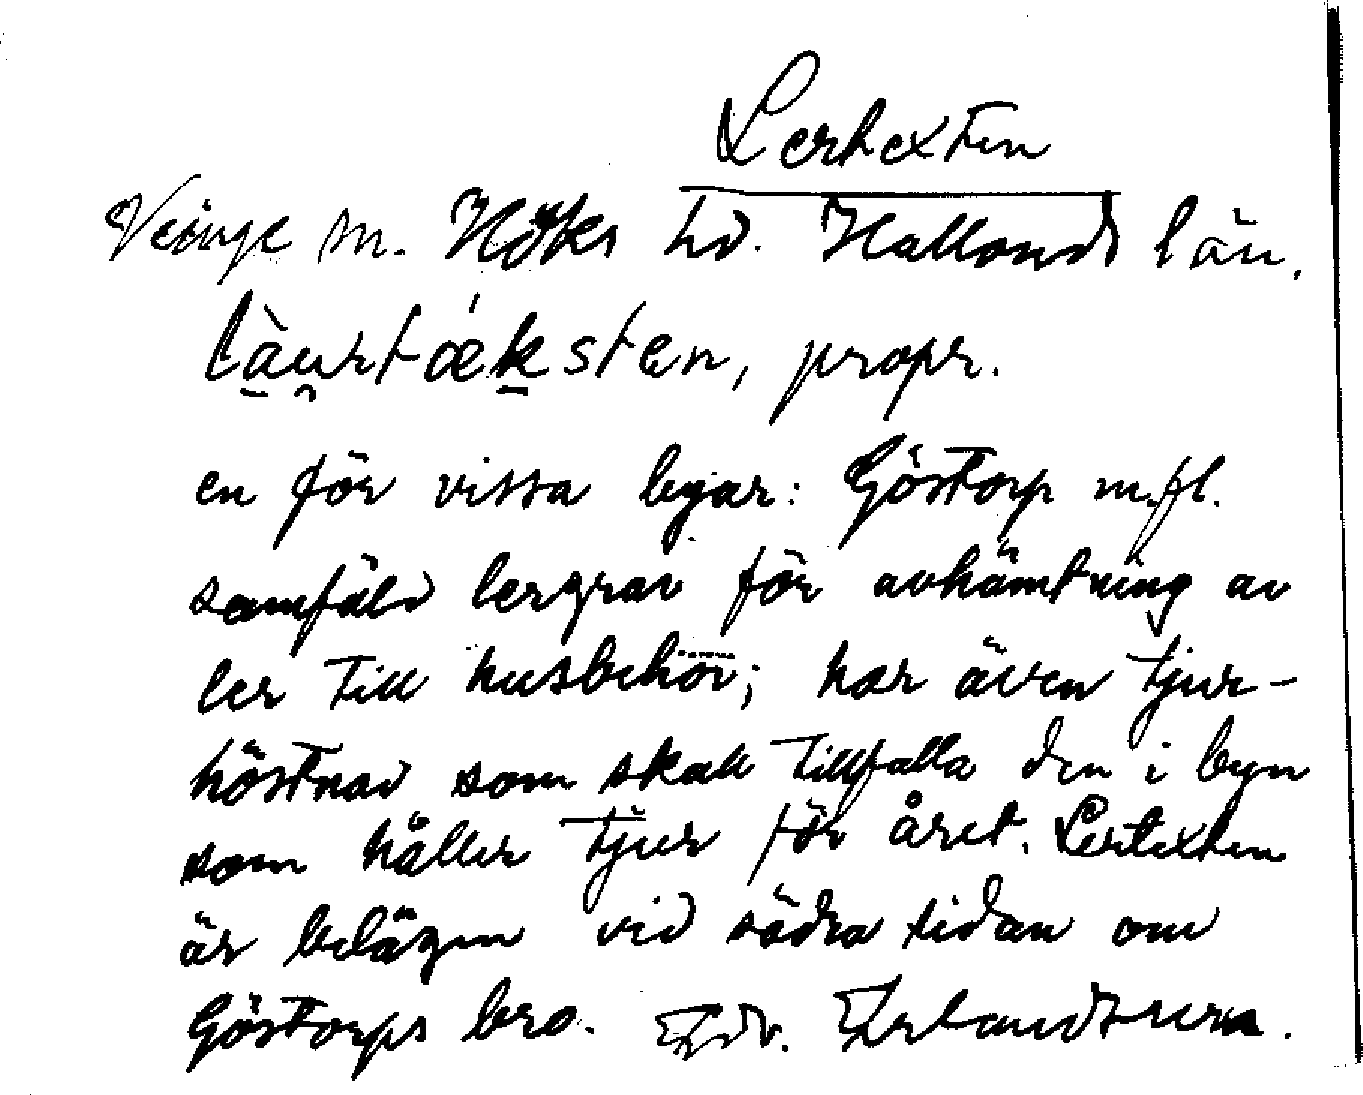 Lertexten
Veinge sn. Höks hd. Hallands län.
làu̯rtǽksten, propr.
en för vissa byar: Göstorp m.fl.
samfäld lergrav för avhämtning av
ler till husbehov; har även tjur-
höstnad som skall tillfalla den i byn
som håller tjur för året. Lertexten
är belägen vid södra sidan om
Göstorps bro. Edv. Erlandsson.